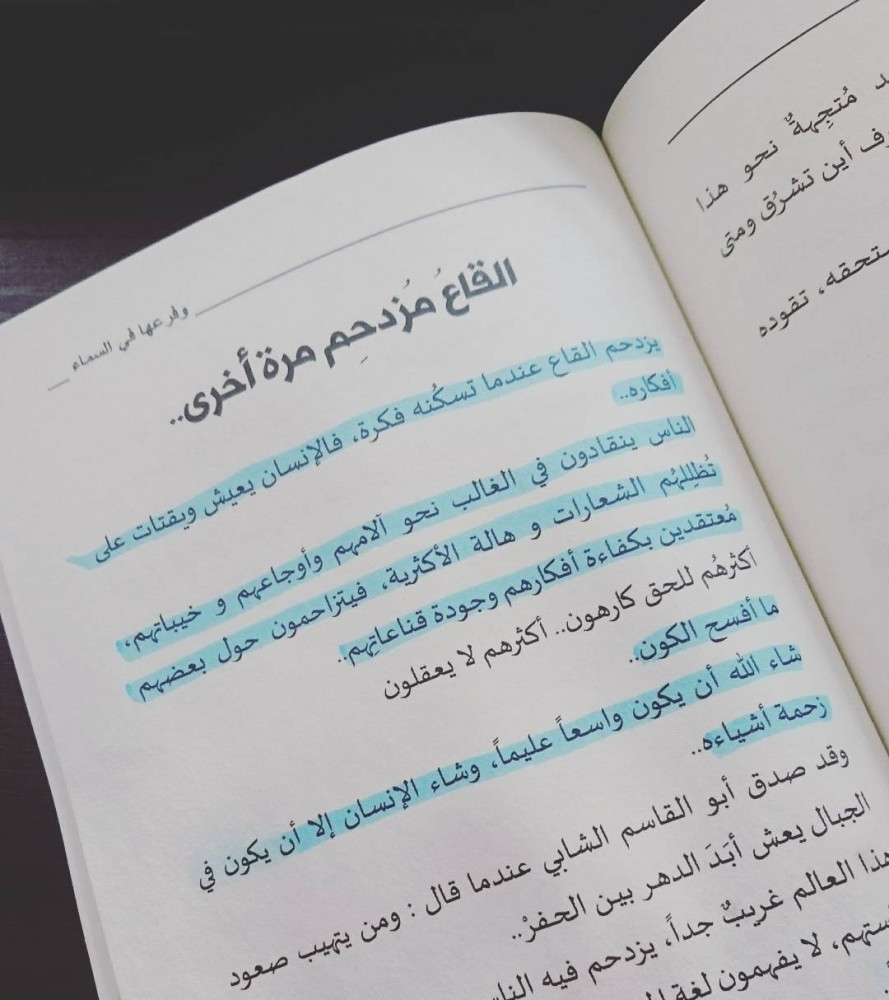 وفرعها في السماء
القاعُ مُزدحِم مرة أخرى..
يزدحم القاع عندما تسكُنه فكرة، فالإنسان يعيش ويقتات على
أفكاره..
الناس ينقادون في الغالب نحو آلامهم وأوجاعهم و خيباتهم،
تُظِللهُم الشعارات و هالة الأكثرية، فيتزاحمون حول بعضهم
مُعتقدين بكفاءة أفكارهم وجودة قناعاتِهم..
أكثرهُم للحق كارهون.. أكثرهم لا يعقلون
ما أفسح الكون..
شاء الله أن يكون واسعاً عليماً، وشاء الإنسان إلا أن يكون في
زحمة أشياءه..
وقد صدق أبو القاسم الشابي عندما قال : ومن يتهيب صعود
الجبال يعش أبَدَ الدهر بين الحفرْ..
هذا العالم غريبٌ جداً، يزدحم فيه
لا يفهمون لغة
مُتجِهةٌ نحو هذا
أين تشرُق ومتى
تقوده